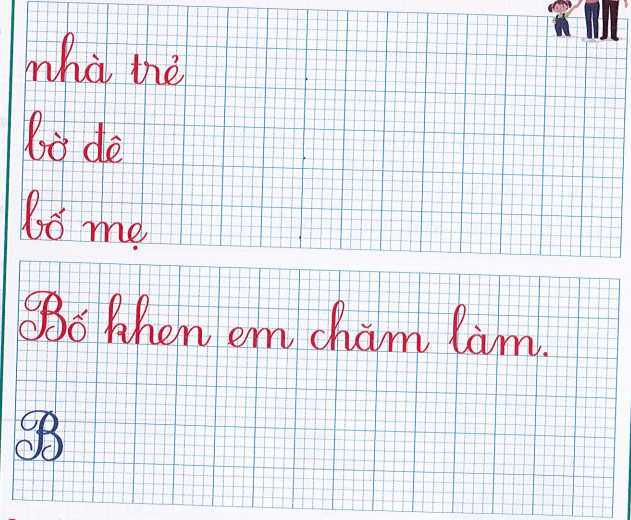 nhà trẻ
bờ đê
bố mẹ
Bố khen em chăm làm.
B